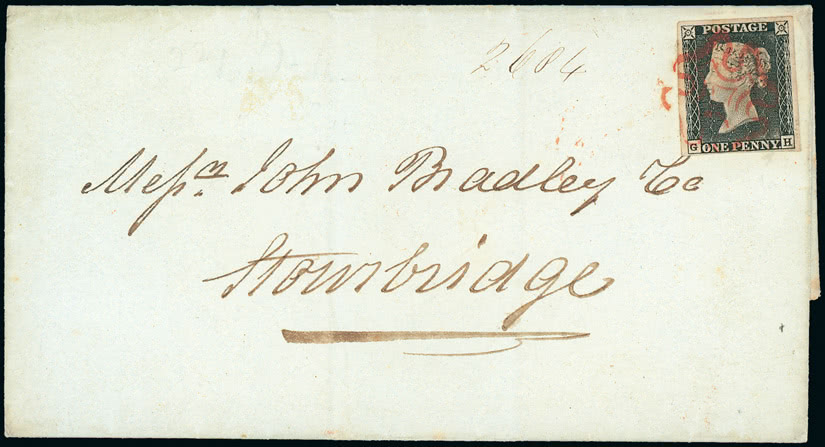 2604
POSTAGE
G ONE PENNY H
Messrs. John Bradley Co
Stourbridge